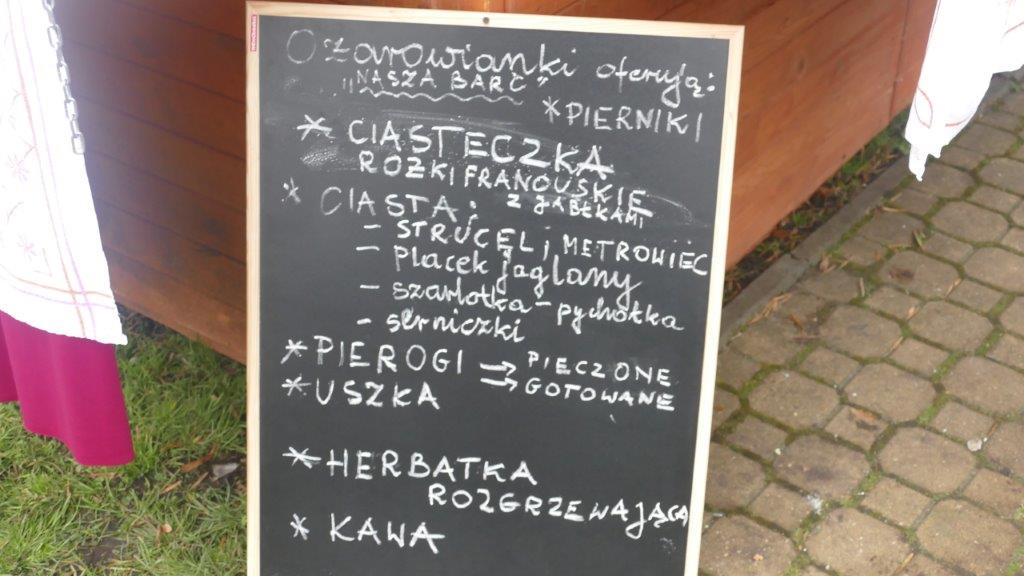 Ożarowianki oferują:
„NASZA BARĆ”
* PIERNIKI
* CIASTECZKA
ROŻKI FRANCUSKIE
Z JABŁKAMI
* CIASTA:
- STRUCEL; METROWIEC
- placek jaglany
- szarlotka - pychotka
- serniczki
* PIEROGI → PIECZONE
→ GOTOWANE
* USZKA
* HERBATKA
ROZGRZEWAJĄCA
* KAWA